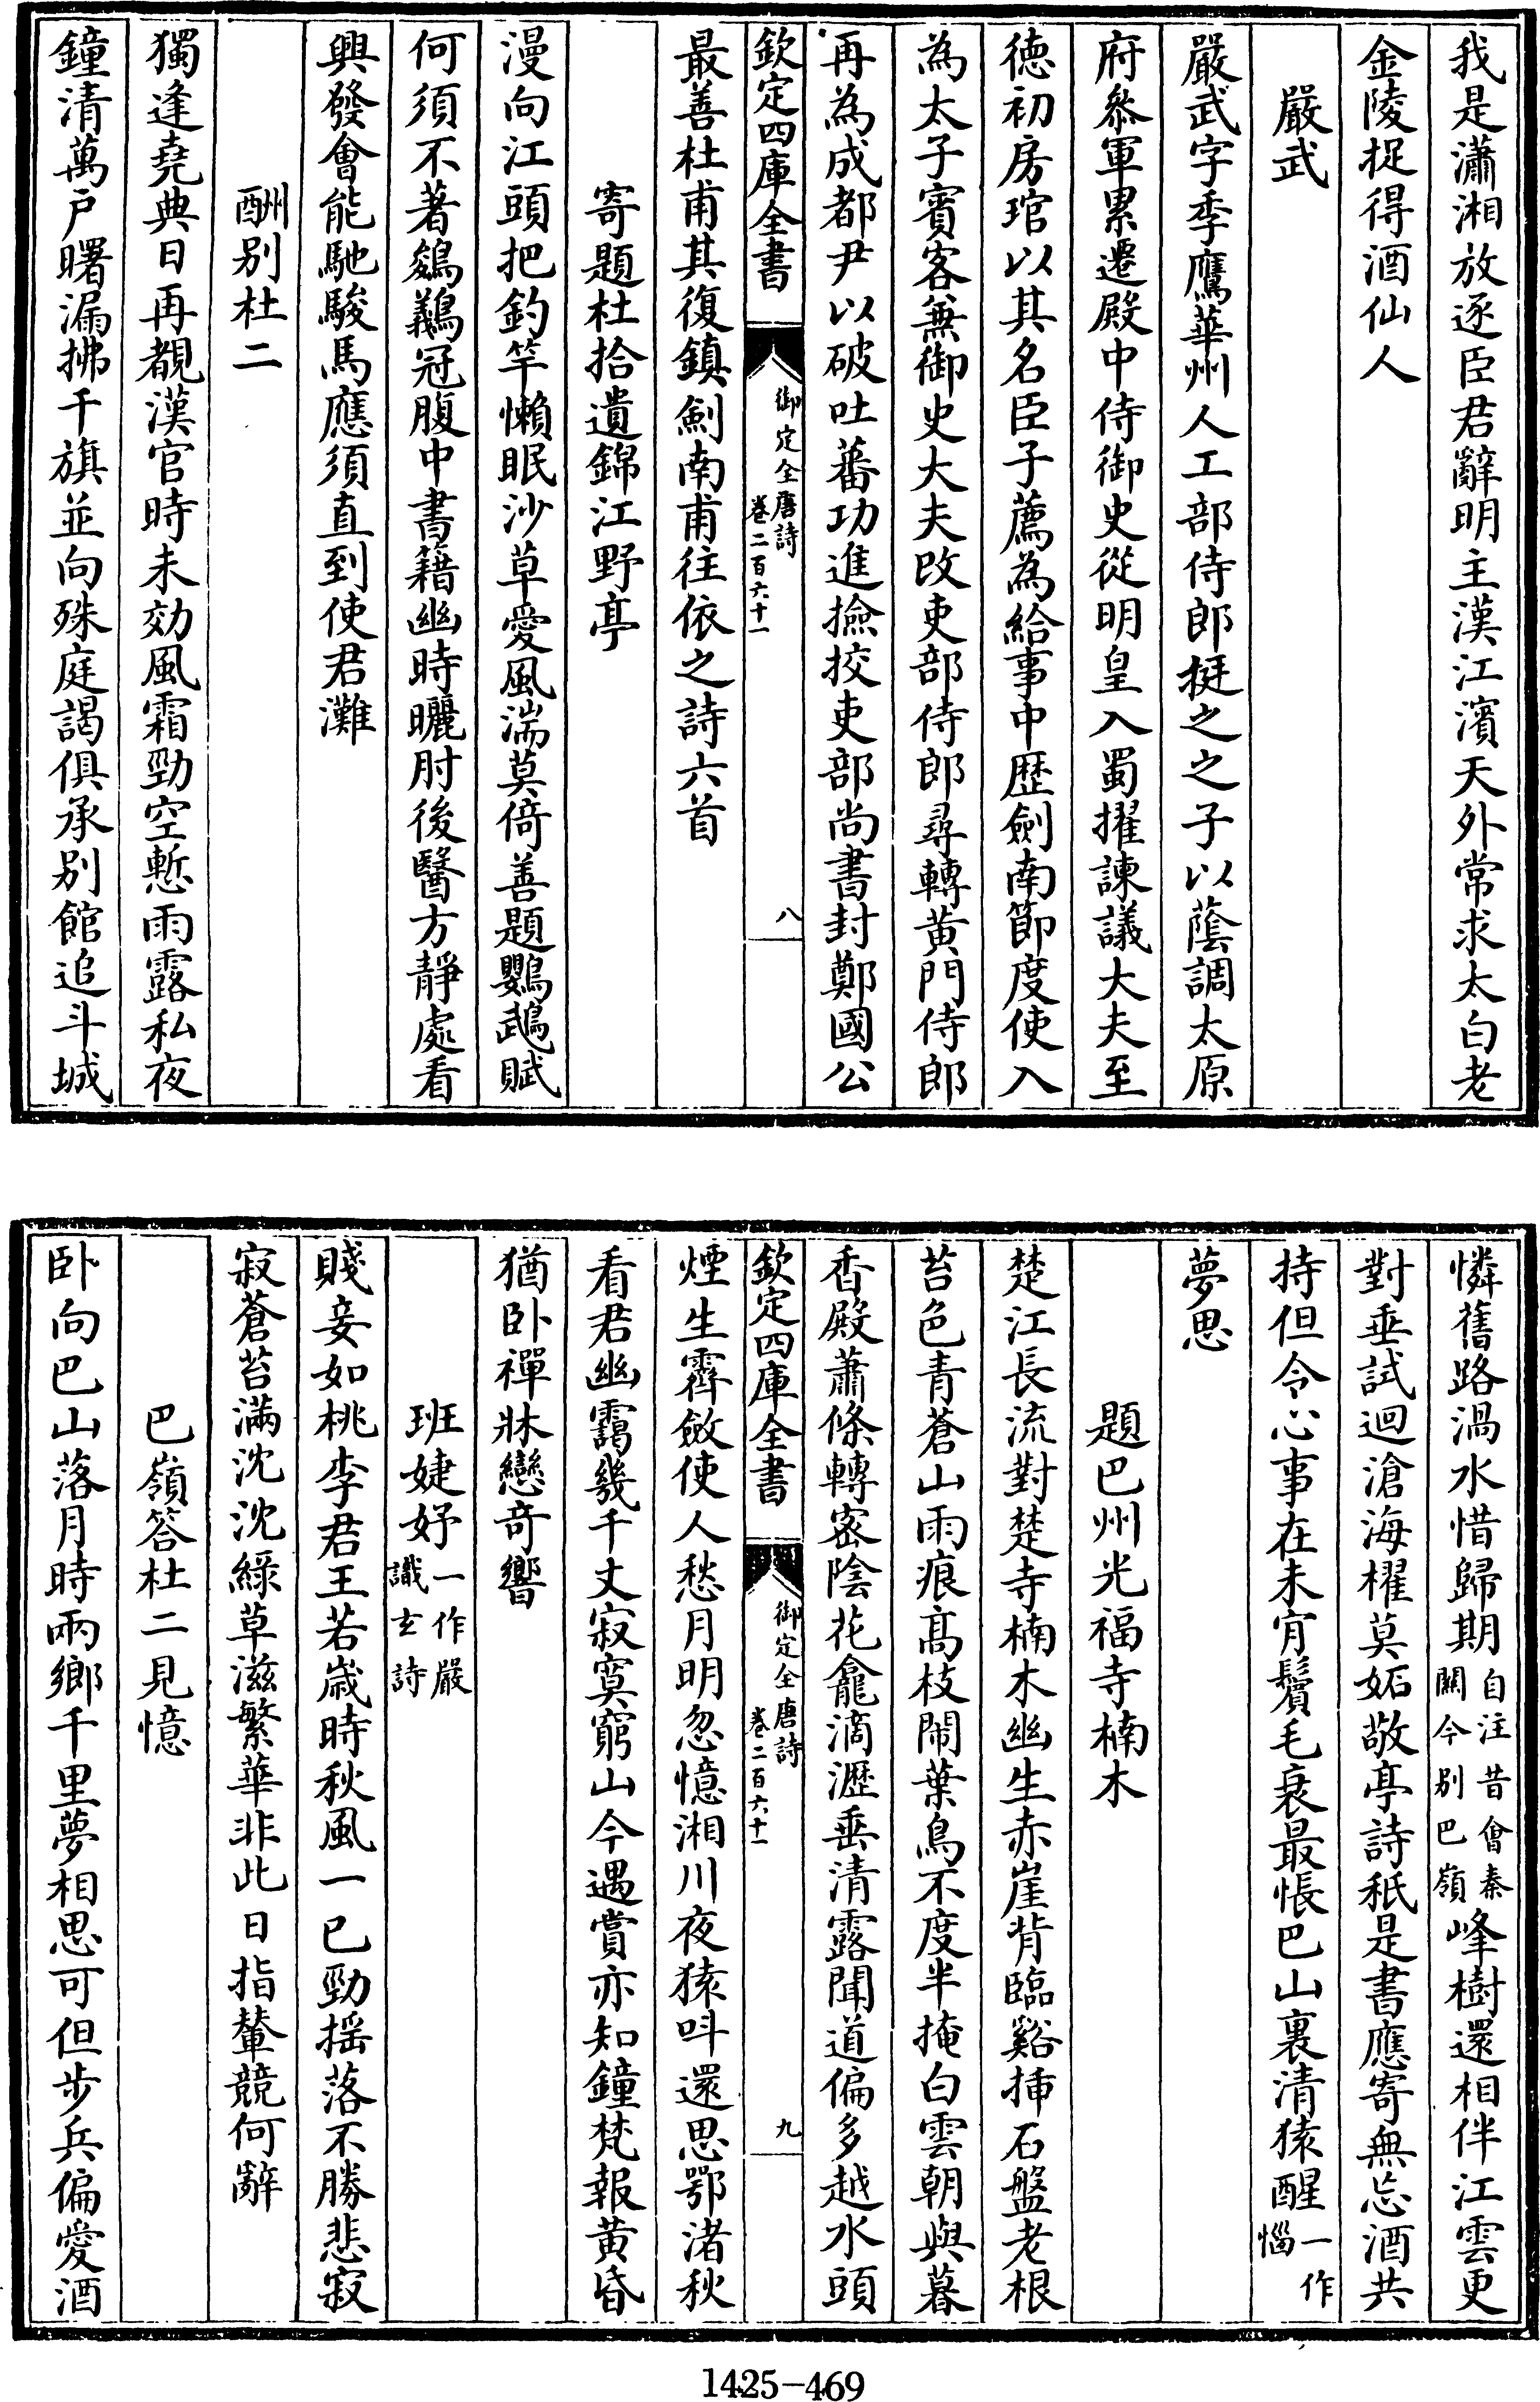 我是瀟湘放逐臣君辭明主漢江濱天外常求太白老
金陵捉得酒仙人
嚴武
嚴武字季鷹華州人工部侍郎挺之之子以蔭調太原
府叅軍累遷殿中侍御史從明皇入蜀擢諫議大夫至
德初房琯以其名臣子薦為給事中歴劍南節度使入
為太子賓客兼御史大夫改吏部侍郎尋轉黄門侍郎
再為成都尹以破吐蕃功進撿挍吏部尚書封鄭國公
欽定四庫全書
御定全唐詩
卷二百六十一
八
最善杜甫其復鎮劍南甫往依之詩六首
寄題杜拾遺錦江野亭
漫向江頭把釣竿懶眠沙草愛風湍莫倚善題鸚鵡賦
何須不著鵕鸃冠腹中書籍幽時曬肘後醫方靜處看
興發會能馳駿馬應須直到使君灘
酬别杜二
獨逢堯典日再覩漢官時未効風霜勁空慙雨露私夜
鐘清萬户曙漏拂千旗並向殊庭謁俱承别館追斗城
憐舊路渦水惜歸期
自注昔會秦
關今别巴嶺
峰樹還相伴江雲更
對垂試迴滄海櫂莫妬敬亭詩秖是書應寄無忘酒共
持但令心事在未肎鬢毛衰最悵巴山裏清猿醒
一作
惱
夢思
題巴州光福寺楠木
楚江長流對楚寺楠木幽生赤崖背臨谿揷石盤老根
苔色青蒼山雨痕髙枝閙葉鳥不度半掩白雲朝與暮
香殿蕭條轉宻陰花龕滴瀝垂清露聞道偏多越水頭
欽定四庫全書
御定全唐詩
卷二百六十一
九
煙生霽斂使人愁月明忽憶湘川夜猿呌還思鄂渚秋
看君幽靄幾千丈寂寞窮山今遇賞亦知鐘梵報黄昏
猶卧禪牀戀竒響
班婕妤
一作嚴
識玄詩
賤妾如桃李君王若嵗時秋風一已勁揺落不勝悲寂
寂蒼苔滿沈沈綠草滋繁華非此日指輦競何辭
巴嶺答杜二見憶
卧向巴山落月時兩鄉千里夢相思可但步兵偏愛酒
1425-469